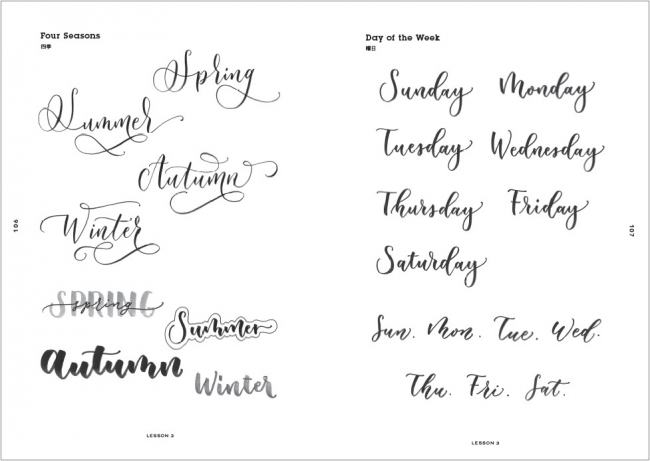 Four Seasons
四季
Spring
Summer
Autumn
Winter
SPRING
spring
Summer
Autumn
Winter
106
LESSON 3
Day of the Week
曜日
Sunday Monday
Tuesday Wednesday
Thursday Friday
Saturday
Sun. Mon. Tue. Wed.
Thu. Fri. Sat.
107
LESSON 3